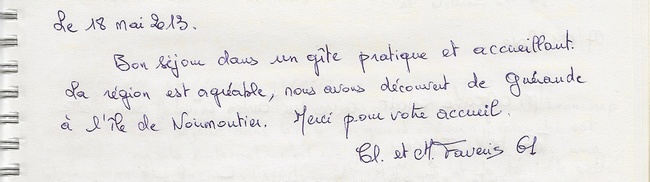 Le 18 mai 2013.
Bon séjour dans un gîte pratique et accueillant.
La région est agréable, nous avons découvert de Guérande
à l'île de Noirmoutier. Merci pour votre accueil.
et M. 61